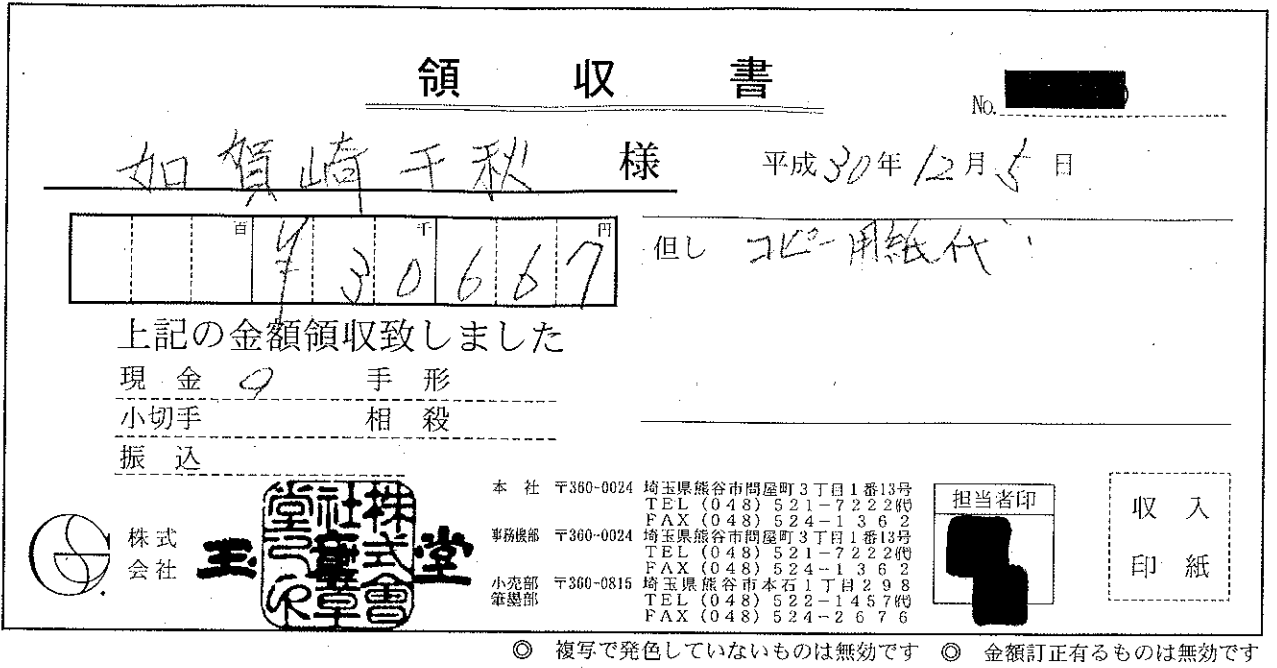 領収書
No.
如賀崎千秋 様
平成30年12月5日
百 千 円
¥30667
但し コピー用紙代
上記の金額領収致しました
現金 手形
小切手 相殺
振込
株式会社 玉 堂
本社 〒360-0024 埼玉県熊谷市問屋町3丁目1番13号
TEL (048) 521-7222㈹
FAX (048) 524-1362
事務機部 〒360-0024 埼玉県熊谷市問屋町3丁目1番13号
TEL (048) 521-7222㈹
FAX (048) 524-1362
小売部 筆墨部 〒360-0815 埼玉県熊谷市本石1丁目298
TEL (048) 522-1457㈹
FAX (048) 524-2676
担当者印
収入
印紙
◎ 複写で発色していないものは無効です ◎ 金額訂正有るものは無効です